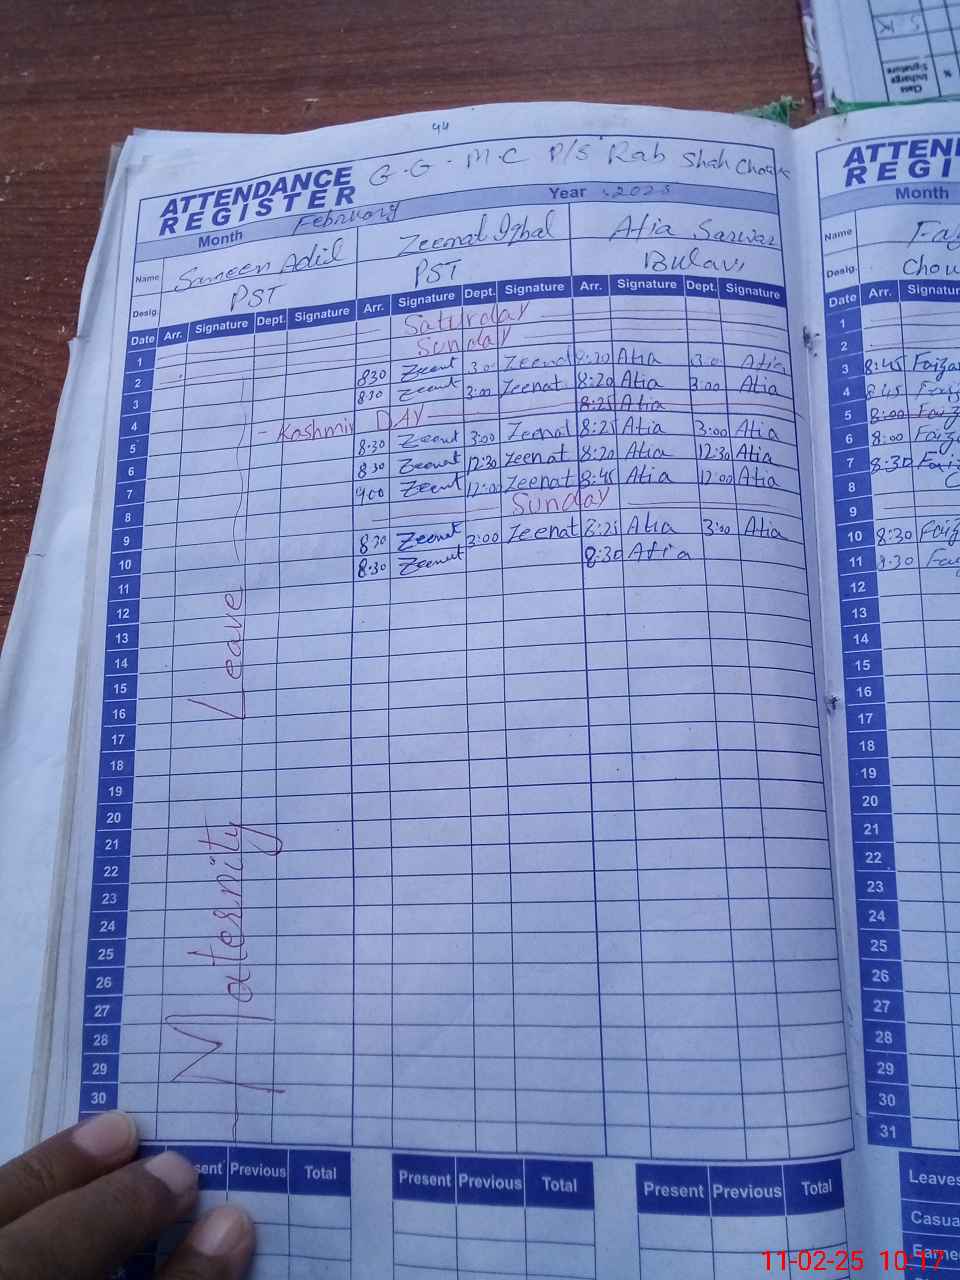 Class Incharge Signature
%
44
ATTENDANCE REGISTER
G.G.M.C P/S Rab Shah
Month February Year 2025
Name Sameen Adil Zeenat Iqbal Atia Sarwar
Desig. PST PST Bulavi
Date Arr. Signature Dept. Signature Arr. Signature Dept. Signature Arr. Signature Dept. Signature
1 Saturday
2 Sunday
3 8:30 Zeenat 3:0 Zeenat 8:20 Atia 3:0 Atia
4 8:30 Zeenat 3:00 Zeenat 8:20 Atia 3:00 Atia
5 - Kashmir DAY 8:25 Atia
6 8:30 Zeenat 3:00 Zeenat 8:25 Atia 3:00 Atia
7 8:30 Zeenat 12:30 Zeenat 8:20 Atia 12:30 Atia
8 9:00 Zeenat 12:00 Zeenat 8:45 Atia 12:00 Atia
9 Sunday
10 8:30 Zeenat 3:00 Zeenat 8:25 Atia 3:00 Atia
11 8:30 Zeenat 8:30 Atia
12
13
14
15
16
17
18
19
20
21
22
23
24
25
26
27
28
29
30
Maternity Leave
Previous Total
Present Previous Total
Present Previous Total
Month
Name
Desig.
Date Arr.
1
2
3 8:45
4 8:45
5 8:00
6 8:00
7 8:30
8
9
10 8:30
11 8:30
12
13
14
15
16
17
18
19
20
21
22
23
24
25
26
27
28
29
30
31
Leaves
11-02-25 10:17